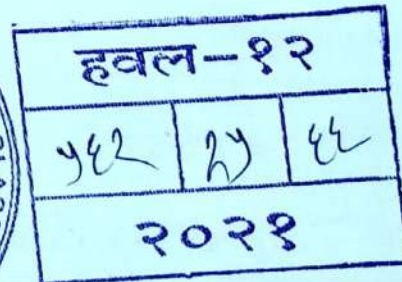 हवल-१२
५६२ २५ ६६
२०२१